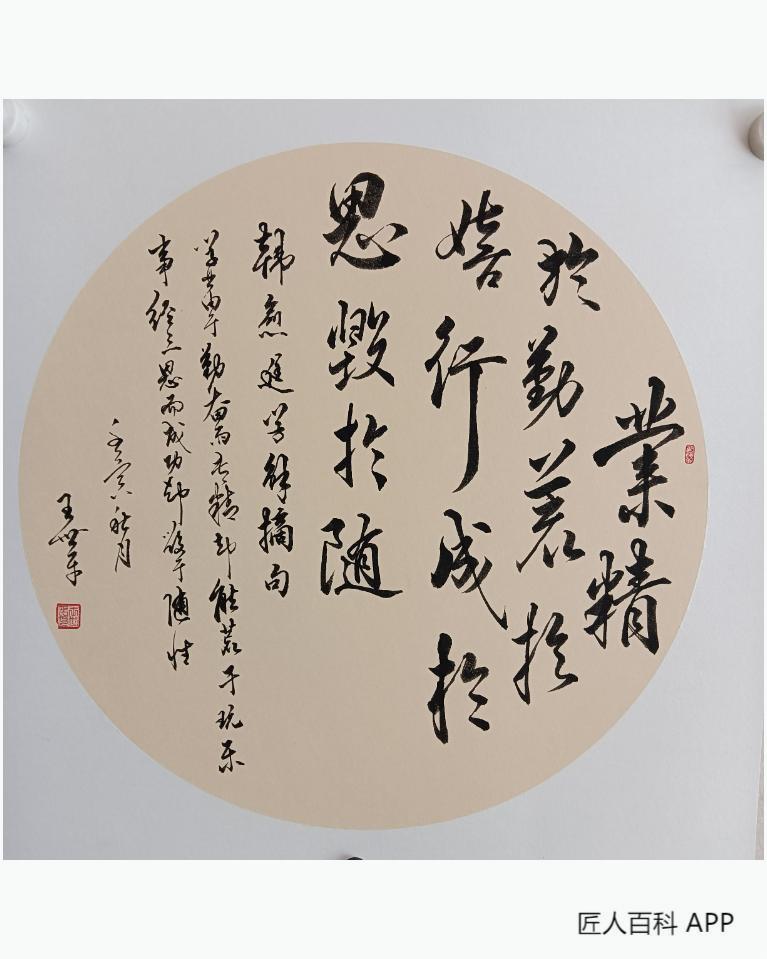 業精
於勤荒於
嬉行成於
思毁於随
韩愈進学解摘句
学业由于勤奋而专精却能荒于玩乐
事经三思而成功却毁于随性
壬寅秋月
王世平
匠人百科 APP